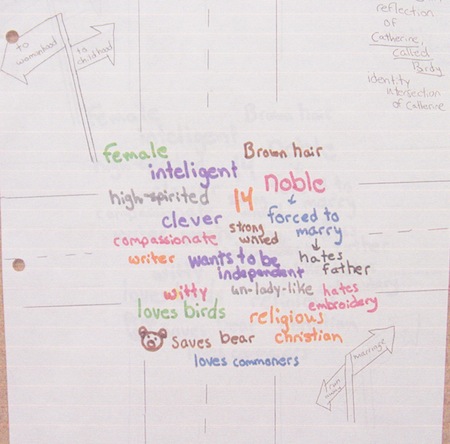 reflection
of
Catherine,
called
Birdy
identity
intersection
of Catherine
to
womanhood
to
childhood
female
Brown hair
inteligent
noble
high-spirited
14
clever
forced to
marry
strong
willed
compassionate
hates
father
writer
wants to be
independent
witty
un-lady-like
hates
embroidery
loves birds
religious
saves bear
christian
loves commoners
marriage
run
away